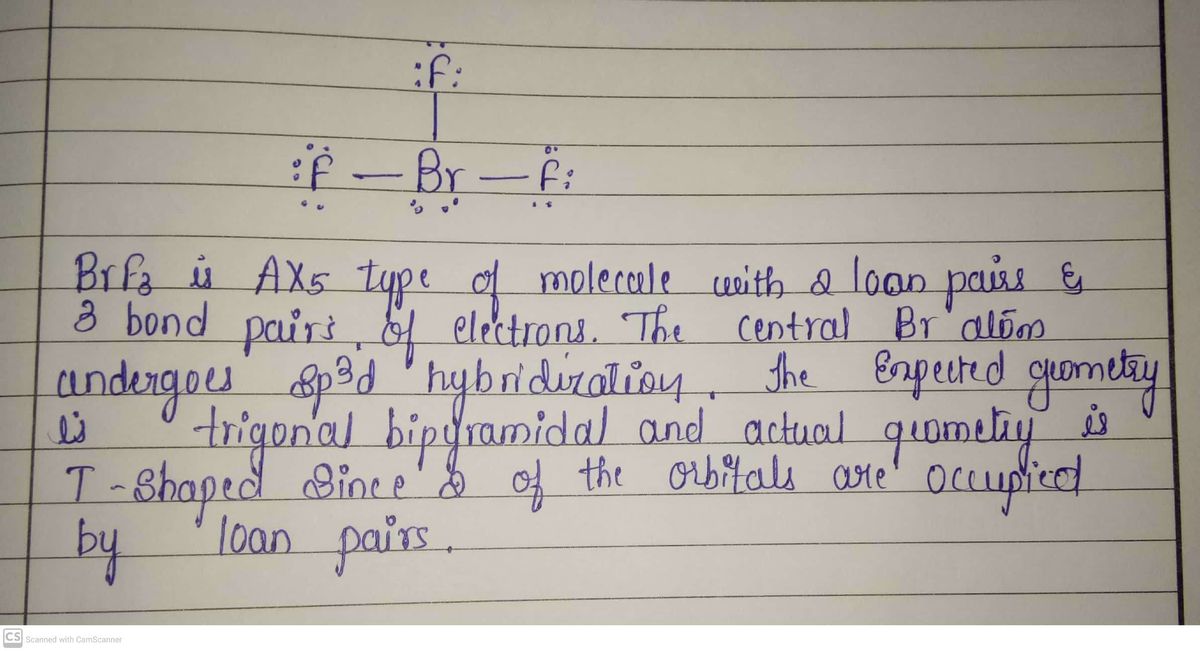 :F:
:F — Br — F:
BrF3 is AX5 type of molecule with 2 loan pairs &
3 bond pairs, of electrons. The central Br atom
undergoes Sp3d hybridization. The Expected geometry
is trigonal bipyramidal and actual geometry is
T-Shaped Since 2 of the orbitals are occupied
by loan pairs.
CS Scanned with CamScanner